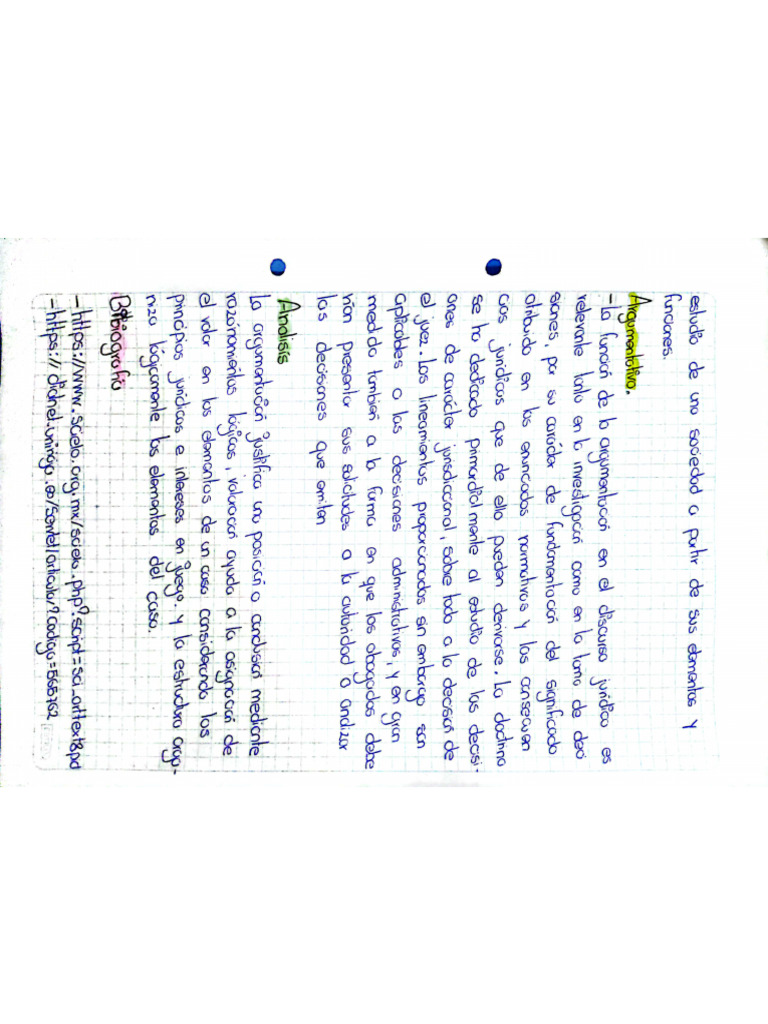 estudio de una sociedad a partir de sus elementos y
funciones.
Argumentativo.
- La función de la argumentación en el discurso jurídico es
relevante tanto en la investigación como en la toma de deci
siones, por su carácter de fundamentación del significado
atribuido en los enunciados normativos y las consecuen
cias jurídicas que de ello pueden derivarse. La doctrina
se ha dedicado primordialmente al estudio de las decisi-
ones de carácter jurisdiccional, sobre todo a la decisión de
el juez. Los lineamientos proporcionados sin embargo son
aplicables a las decisiones administrativas, y en gran
medida también a la forma en que los abogados debe
rían presentar sus solicitudes a la autoridad o analizar
las decisiones que emiten
Analisis
La argumentación justifica una posición o conclusión mediante
razonamientos lógicos, valoración ayuda a la asignación de
el valor en los elementos de un caso considerando los
principios jurídicos e intereses en juego. y la estructura orga-
niza lógicamente los elementos del caso.
Bibiografia
-https://www.scielo.org.mx/scielo.php?script=sci_arttext&pd
-https://dialnet.unirioja.es/servlet/articulo?codigo=565762